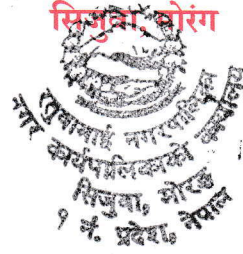 सिजुवा, मोरंग
रतुवामाई नगरपालिका
नगर कार्यपालिकाको कार्यालय
सिजुवा, मोरङ
१ नं. प्रदेश, नेपाल